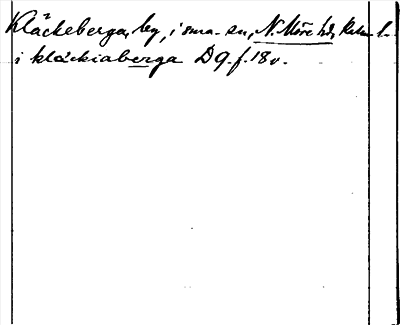 Kläckeberga, by, i sma. sn, N. Möre hd, Kalm. l.
i klækiaberga D 9. f. 18 v.